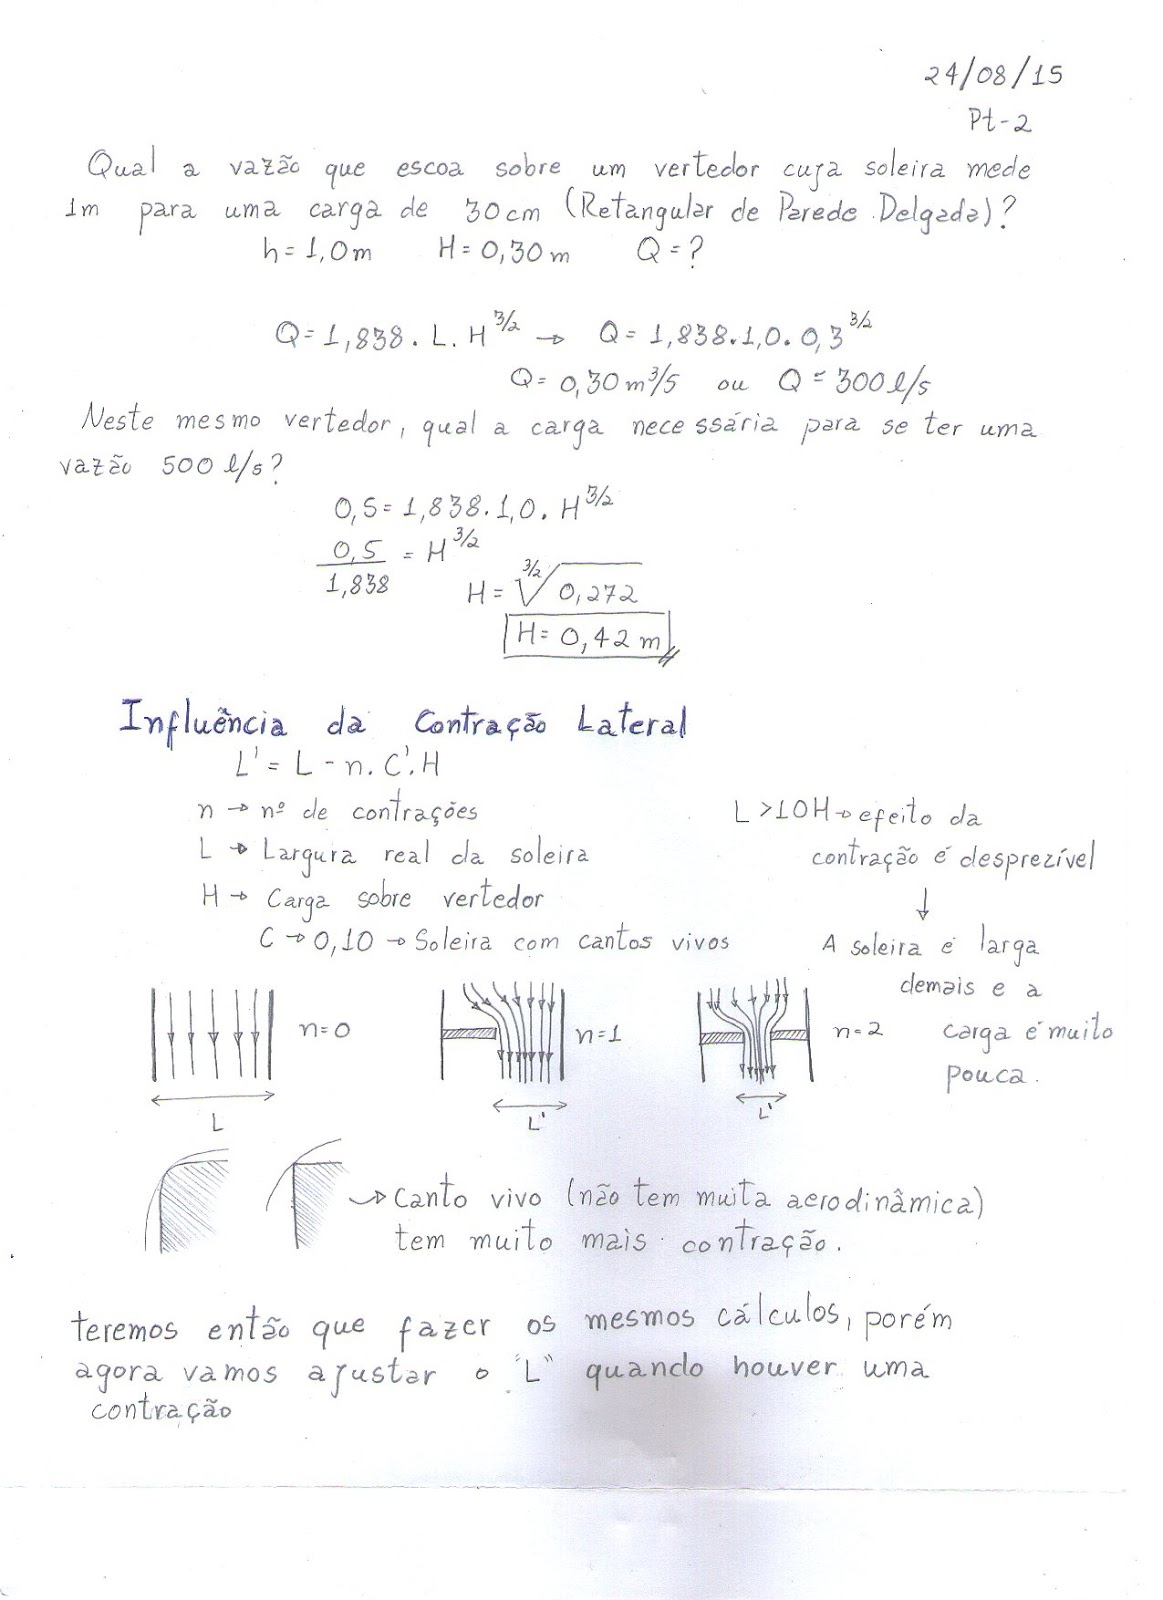 24/08/15
Pt-2
Qual a vazão que escoa sobre um vertedor cuja soleira mede
1m para uma carga de 30cm (Retangular de Parede Delgada)?
h=1,0m H=0,30m Q=?
Q=1,838.L.H^3/2 → Q=1,838.1,0.0,3^3/2
Q=0,30m³/s ou Q=300l/s
Neste mesmo vertedor, qual a carga necessária para se ter uma
vazão 500l/s?
0,5=1,838.1,0.H^3/2
0,5/1,838 = H^3/2
H= 3/2√0,272
H=0,42m
Influência da Contração Lateral
L'=L-n.C'.H
n → nº de contrações
L → Largura real da soleira
H → Carga sobre vertedor
C → 0,10 → Soleira com cantos vivos
L>10H → efeito da
contração é desprezível
↓
A soleira é larga
demais e a
carga é muito
pouca.
n=0
n=1
n=2
L
L'
L'
→ Canto vivo (não tem muita aerodinâmica)
tem muito mais contração.
teremos então que fazer os mesmos cálculos, porém
agora vamos ajustar o "L" quando houver uma
contração